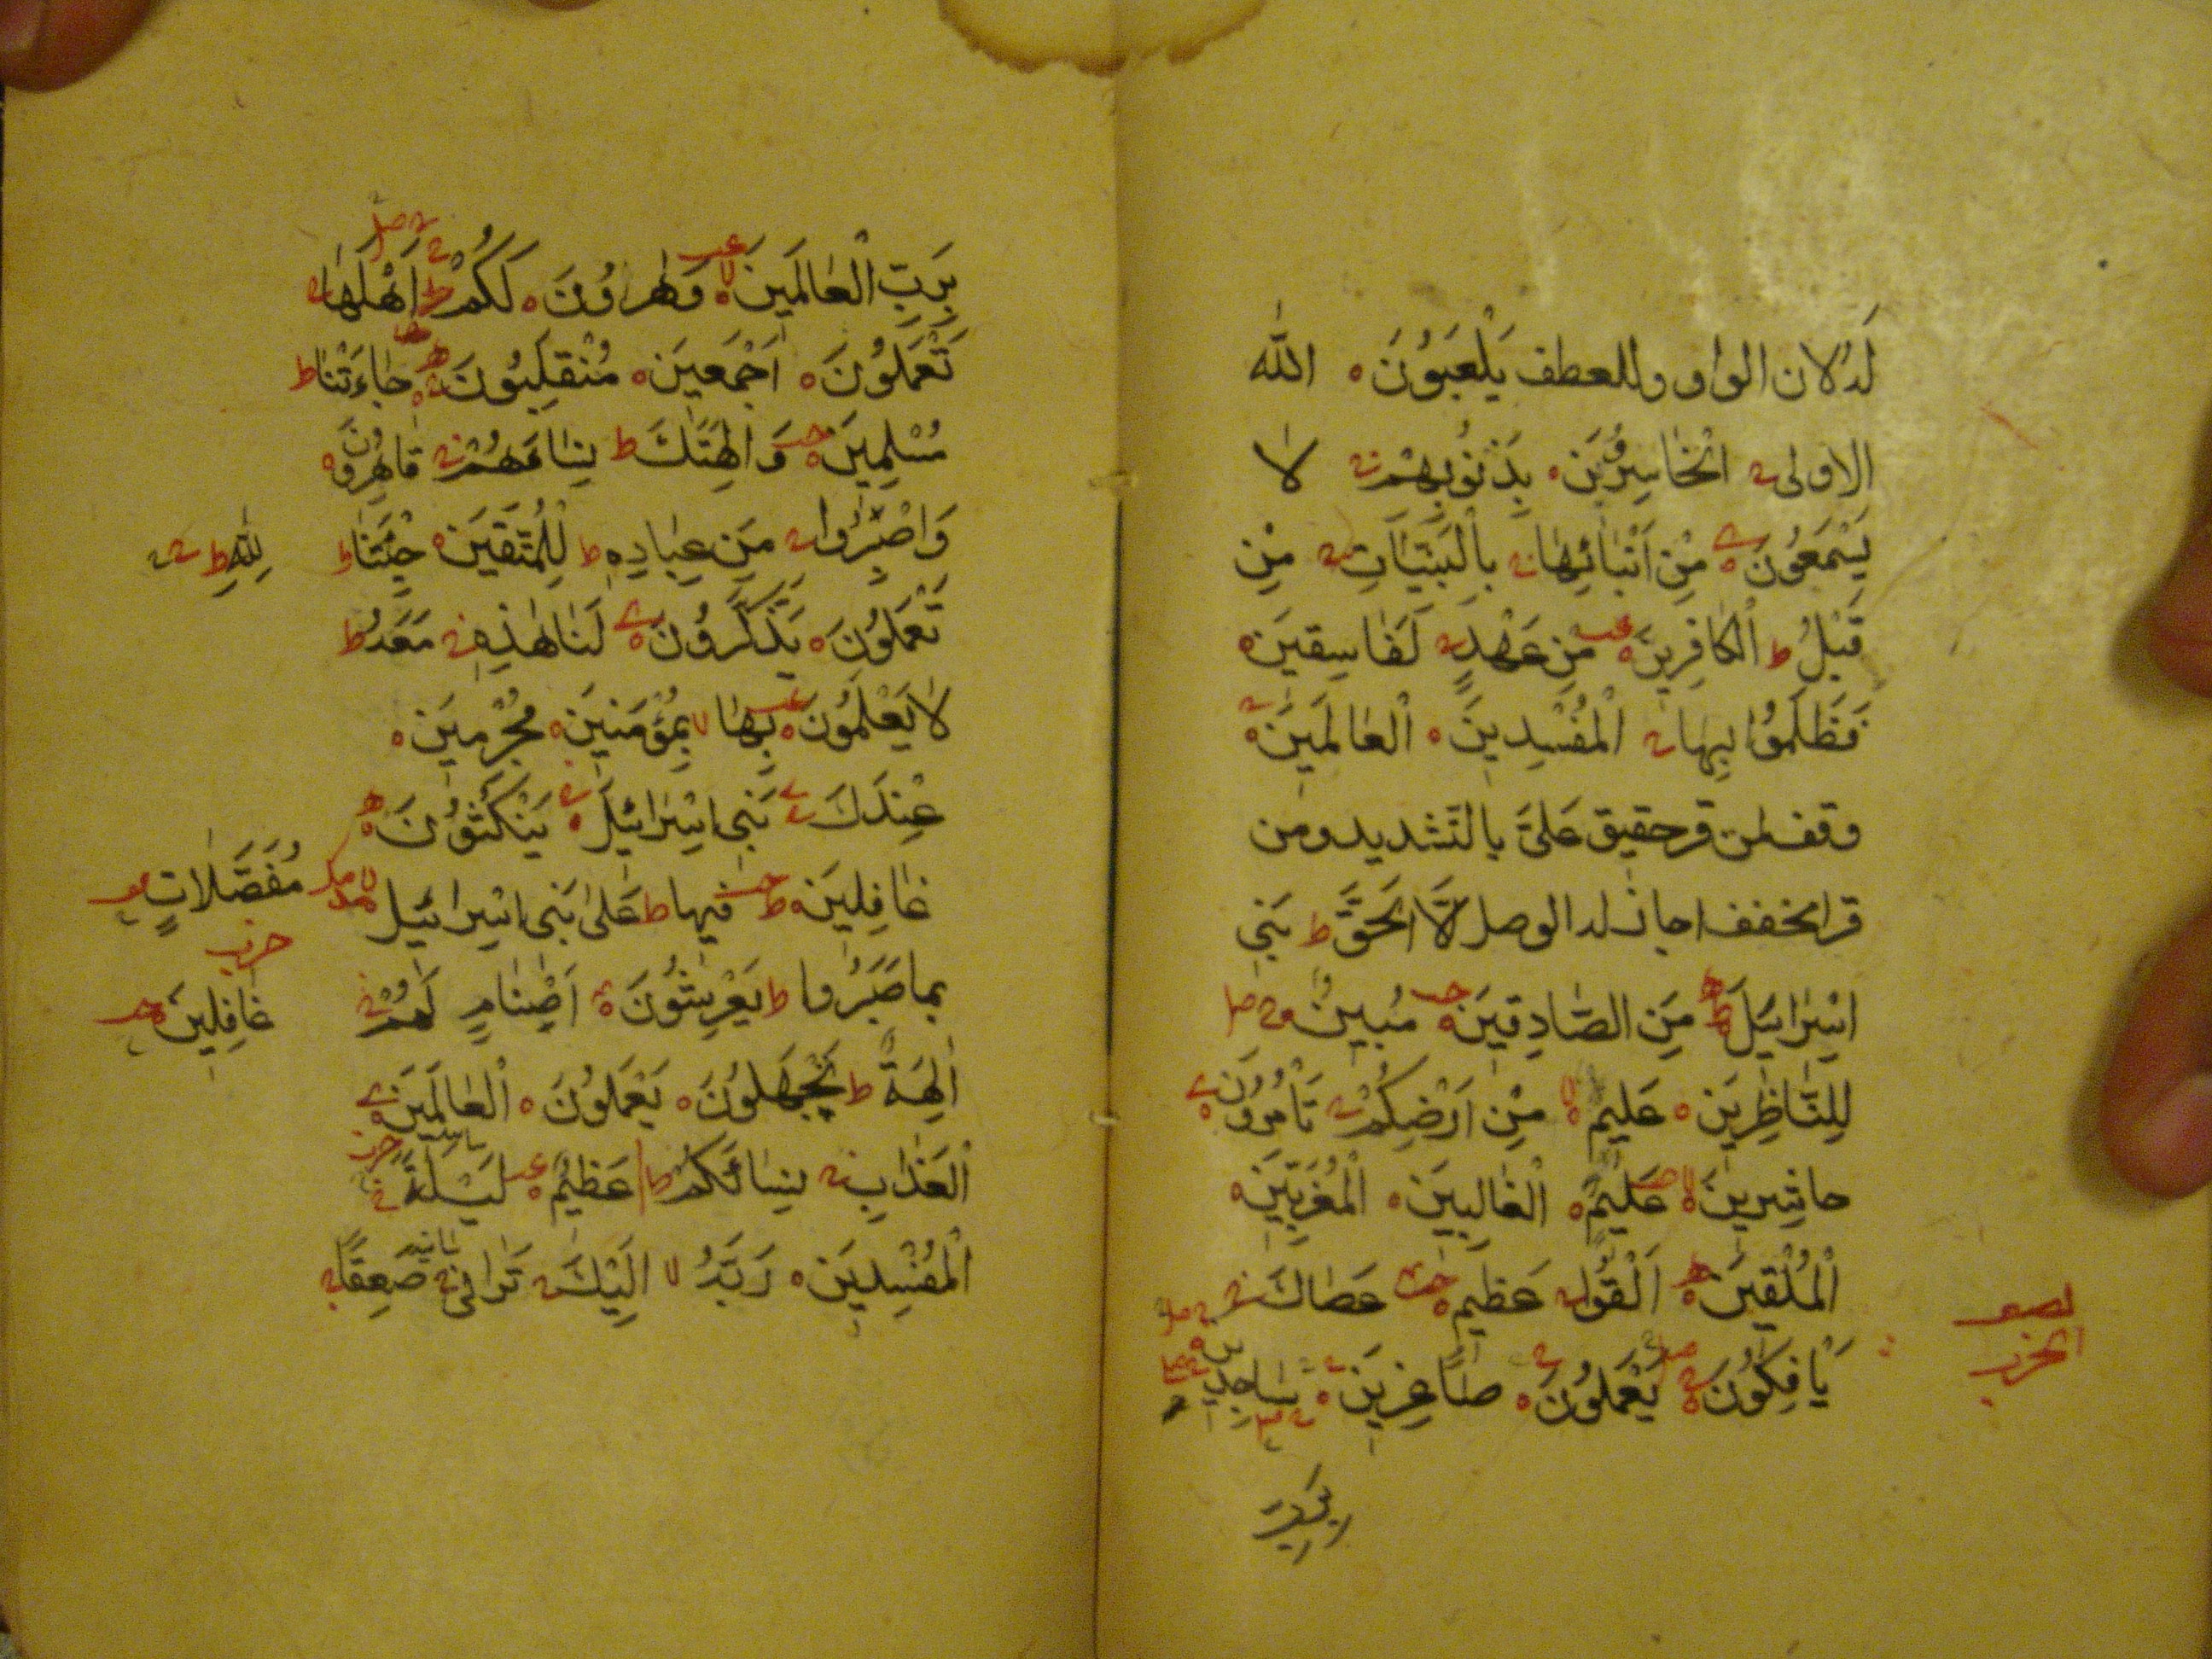 لَهُ لان الواو وللعطف يَلْعَبُونَ ه الله
الاولى الْخَاسِرُونَ ه بِذُنُوبِهِمْ لا
يَسْمَعُونَ ه مِنْ اَنْبَائِهَا بِالْبَيِّنَاتِ مِنْ
قَبْلُ ط الْكَافِرِينَ ه مِنْ عَهْدٍ لَفَاسِقِينَ ه
فَظَلَمُوا بِهَا الْمُفْسِدِينَ ه الْعَالَمِينَ ه
وقف لمن قر حقيق عَلَيَّ بالتشديد ومن
قرا مخفف اجاز له الوصل اِلَّا الْحَقَّ ط بَنِي
اِسْرَائِيلَ ط مِنَ الصَّادِقِينَ ه مُبِينٌ صل
لِلنَّاظِرِينَ ه عَلِيمٌ لا مِنْ اَرْضِكُمْ تَأْمُرُونَ ه
حَاشِرِينَ لا عَلِيمٍ ه الْغَالِبِينَ ه الْمُقَرَّبِينَ ه
الْمُلْقِينَ ه اَلْقُوا عَظِيمٍ ه عَصَاكَ
يَأْفِكُونَ ه يَعْمَلُونَ ه صَاغِرِينَ ه سَاجِدِينَ
الحزب
بِرَبِّ الْعَالَمِينَ لا وَهٰرُونَ ه لَكُمْ ط اَهْلَهَا
تَعْمَلُونَ ه اَجْمَعِينَ ه مُنْقَلِبُونَ ه جَاءَتْنَا ط
مُسْلِمِينَ ه وَاٰلِهَتَكَ ط نِسَاءَهُمْ قَاهِرُونَ ه
وَاصْبِرُوا مِنْ عِبَادِهِ ط لِلْمُتَّقِينَ ه جِئْتَنَا ط
لِلّٰهِ ط
تَعْمَلُونَ ه يَذَّكَّرُونَ ه لَنَا هٰذِهِ مَعَهُ ط
لَا يَعْلَمُونَ ه بِهَا لا بِمُؤْمِنِينَ ه مُجْرِمِينَ ه
عِنْدَكَ بَنِي اِسْرَائِيلَ ه يَنْكُثُونَ ه
مُفَصَّلَاتٍ
غَافِلِينَ ه ط فِيهَا ط عَلٰى بَنِي اِسْرَائِيلَ لا
حزب
غَافِلِينَ
بِمَا صَبَرُوا ط يَعْرِشُونَ ه اَصْنَامٍ لَهُمْ
اٰلِهَةٌ ط تَجْهَلُونَ ه يَعْمَلُونَ ه الْعَالَمِينَ ه
الْعَذَابِ نِسَائَكُمْ ط عَظِيمٌ ه لَيْلَةً
الْمُفْسِدِينَ ه رَبَّهُ لا اِلَيْكَ تَرَانِي صَعِقًا